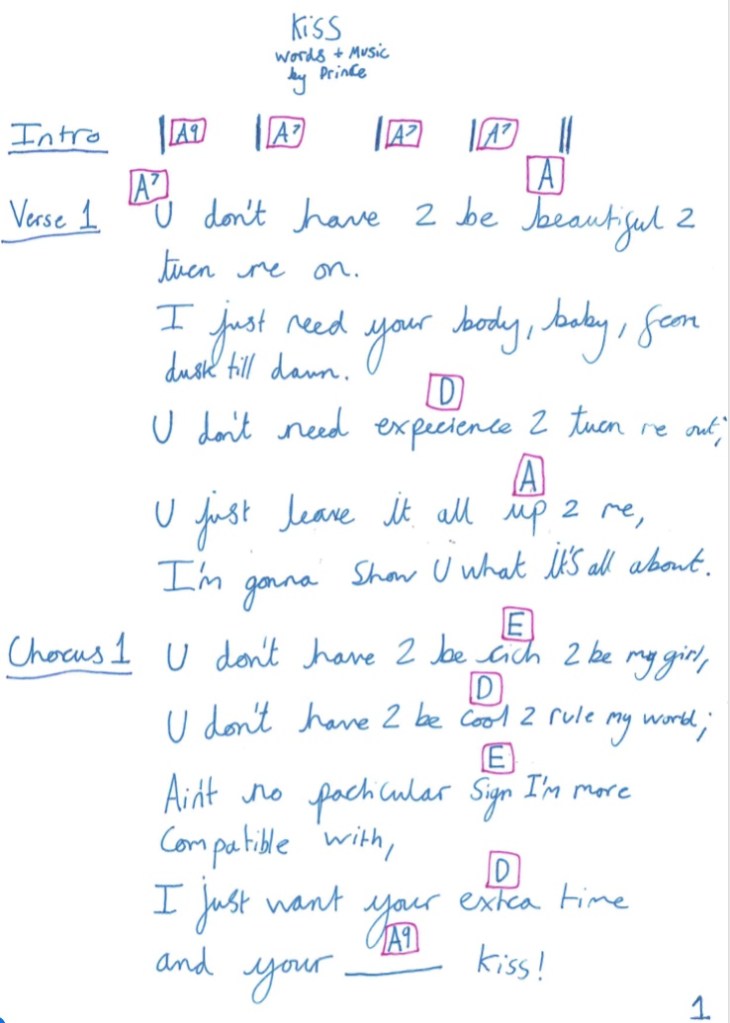 Kiss
Words + Music
by Prince
Intro | A9 | A7 | A7 | A7 ||
A7 A
Verse 1 U don't have 2 be beautiful 2
turn me on.
I just need your body, baby, from
dusk till dawn.
D
U don't need experience 2 turn me out;
A
U just leave it all up 2 me,
I'm gonna show U what it's all about.
E
Chorus 1 U don't have 2 be rich 2 be my girl,
D
U don't have 2 be cool 2 rule my world;
E
Ain't no particular sign I'm more
compatible with,
D
I just want your extra time
A9
and your ____ kiss!
1